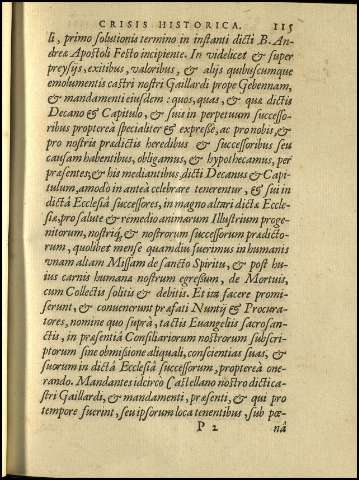 CRISIS HISTORICA. 115
li, primo solutionis termino in instanti dicti B. An-
dreæ Apostoli Festo incipiente. In videlicet & super
preysijs, exitibus, valoribus, & alijs quibuscumque
emolumentis castri nostri Gaillardi prope Gebennam,
& mandamenti eiusdem: quos, quas, & quæ dictis
Decano & Capitulo, & suis in perpetuum successo-
ribus proptereà specialiter & expressè, ac pro nobis, &
pro nostris prædictis heredibus & successoribus seu
causam habentibus, obligamus, & hypothecamus, per
præsentes, & his mediantibus, dicti Decanus & Capi-
tulum, amodo in anteà celebrare tenerentur, & sui in
dictâ Ecclesiâ successores, in magno altari dictæ Eccle-
siæ, pro salute & remedio animarum Illustrium proge-
nitorum, nostriq́, & nostrorum successorum prædicto-
rum, quolibet mense quamdiu fuerimus in humanis
vnam altam Missam de sancto Spiritu, & post hu-
ius carnis humanæ nostrum egressum, de Mortuis,
cum Collectis solitis & debitis. Et ita facere promi-
serunt, & conuenerunt præfati Nuntij & Procura-
tores, nomine quo suprà, tactis Euangeliis sacrosan-
ctis, in præsentiâ Consiliariorum nostrorum subscri-
ptorum sine obmissione aliquali, conscientias suas, &
suorum in dictâ Ecclesiâ successorum, proptereà one-
rando. Mandantes idcirco Castellano nostro dicti ca-
stri Gaillardi, & mandamenti, præsenti, & qui pro
tempore fuerint, seu ipsorum loca tenentibus, sub pœ-
P 2 nâ